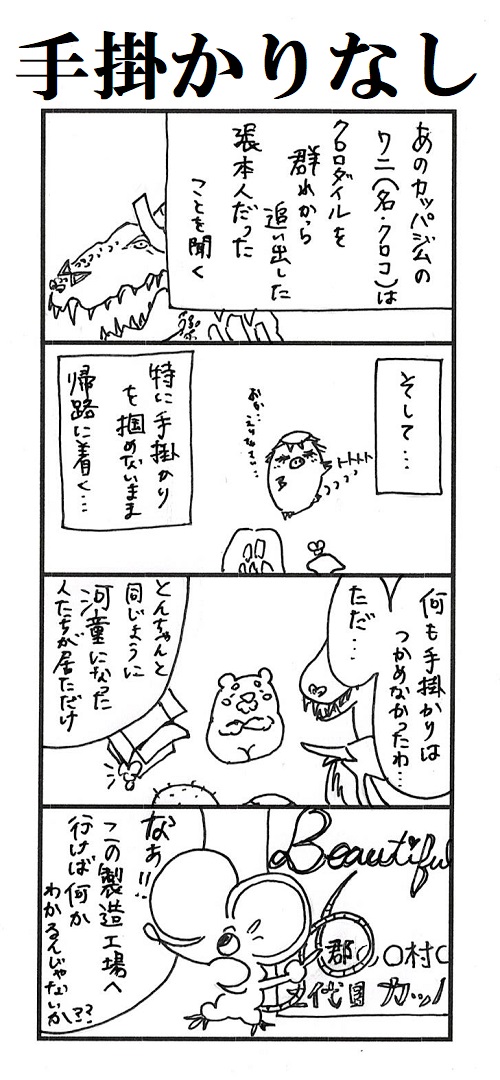 手掛かりなし
あのカッパジムの
ワニ(名・クロコ)は
クロロダイルを
群れから
追い出した
張本人だった
ことを聞く
そして…
トトトト
おか…えりなさい…
特に手掛かり
を掴めないまま
帰路に着く…
何も手掛かりは
つかめなかったわ…
ただ…
とんちゃんと
同じように
河童になった
人たちが居ただけ
Beautiful
郡
〇村〇
代目 カッパ
なぁ!!
この製造工場へ
行けば何か
わかるんじゃないか??